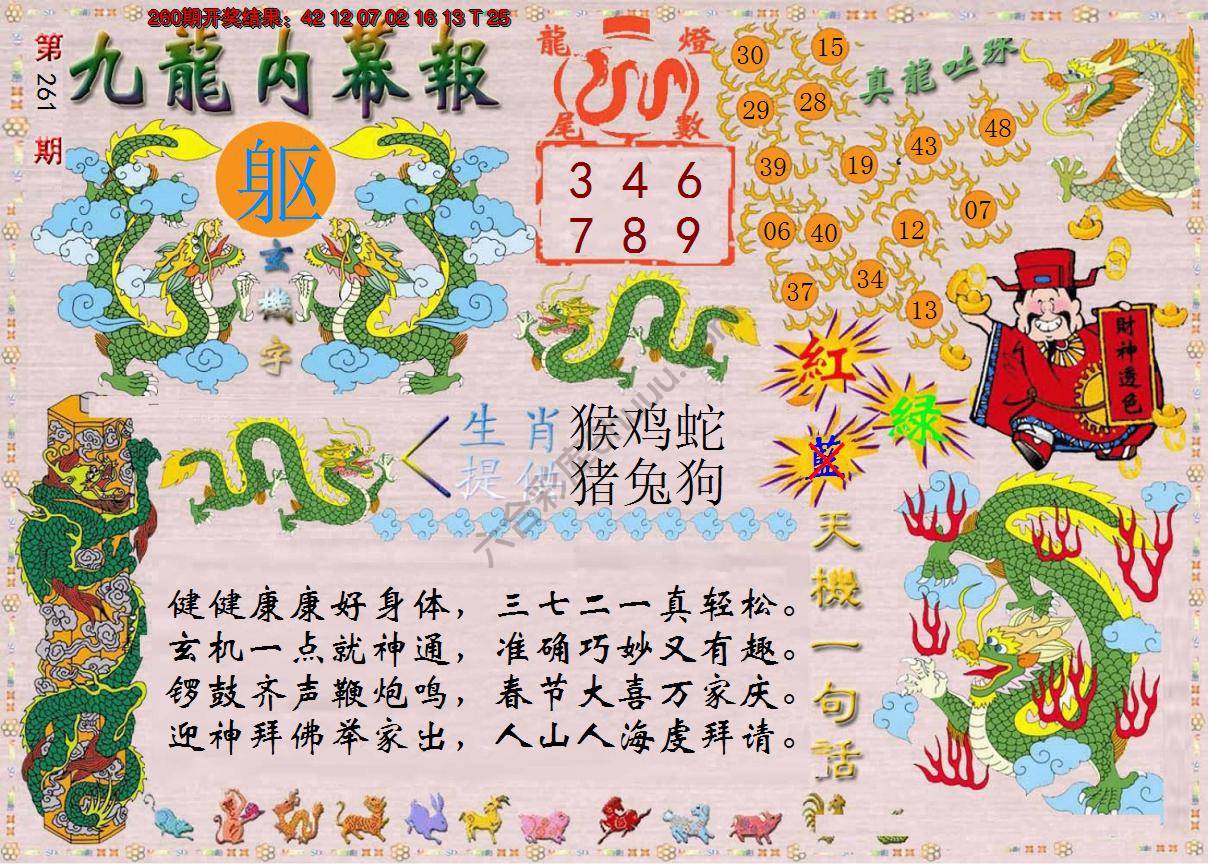 260期开奖结果：42 12 07 02 16 13 T 25
第261期
九龍内幕報
躯
玄機字
龍燈
尾數
3 4 6
7 8 9
真龍吐珠
30 15
29 28
43 48
39 19
07
06 40 12
37 34
13
財神透色
紅
綠
藍
生肖 猴鸡蛇
提供 猪兔狗
天機一句話
健健康康好身体，三七二一真轻松。
玄机一点就神通，准确巧妙又有趣。
锣鼓齐声鞭炮鸣，春节大喜万家庆。
迎神拜佛举家出，人山人海虔拜请。